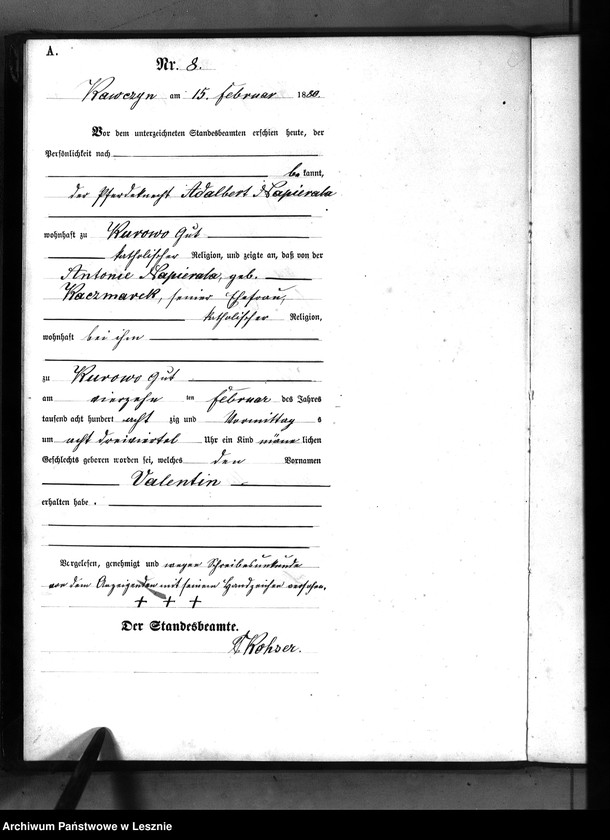 A.
Nr. 8.
Kawczyn am 15. Februar 1880.
Vor dem unterzeichneten Standesbeamten erschien heute, der
Persönlichkeit nach
be kannt,
der Pferdeknecht Adalbert Napierala
wohnhaft zu Kurowo Gut
katholischer Religion, und zeigte an, daß von der
Antonie Napierala, geb.
Kaczmarek, seiner Ehefrau,
katholischer Religion,
wohnhaft bei ihm
zu Kurowo Gut
am vierzehn ten Februar des Jahres
tausend acht hundert acht zig und Vormittag s
um acht dreiviertel Uhr ein Kind männ lichen
Geschlechts geboren worden sei, welches den Vornamen
Valentin
erhalten habe.
Vorgelesen, genehmigt und wegen Schreibesunkunde
von dem Anzeigenden mit seinem Handzeichen versehen.
+ + +
Der Standesbeamte.
Kohser.
Archiwum Państwowe w Lesznie